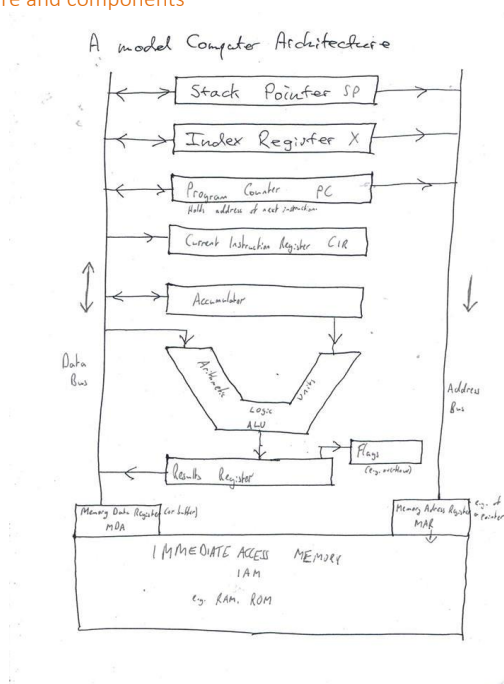 re and components
A model Computer Architecture
Stack Pointer SP
Index Register X
Program Counter PC
Holds address of next instruction
Current Instruction Register CIR
Accumulator
Data
Bus
Address
Bus
Arithmetic
Logic
Units
ALU
Flags
(e.g. overflow)
Results Register
Memory Data Register (or buffer)
MDA
Memory Adress Register
MAR
e.g. of
a pointer
IMMEDIATE ACCESS MEMORY
IAM
e.g. RAM, ROM